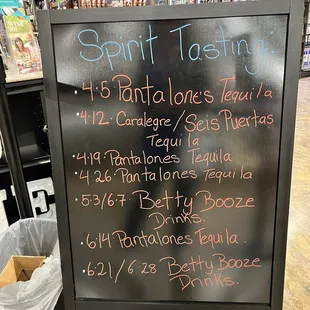 Spirit Tasting:
• 4·5 Pantalones Tequila
• 4·12· Caralegre/Seis Puertas
Tequila
• 4·19· Pantalones Tequila
• 4·26· Pantalones Tequila
• 5·3/6·7· Betty Booze
Drinks.
• 6·14 Pantalones Tequila.
• 6·21/6·28 Betty Booze
Drinks.